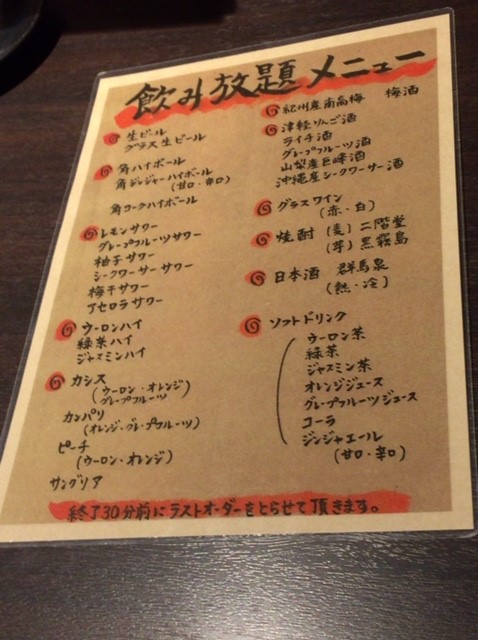 飲み放題メニュー
生ビール
グラス生ビール
角ハイボール
角ジンジャーハイボール
(甘口・辛口)
角コークハイボール
レモンサワー
グレープフルーツサワー
柚子サワー
シークワーサーサワー
梅干サワー
アセロラサワー
ウーロンハイ
緑茶ハイ
ジャスミンハイ
カシス
(ウーロン・オレンジ)
グレープフルーツ
カンパリ
(オレンジ・グレープフルーツ)
ピーチ
(ウーロン・オレンジ)
サングリア
紀州産南高梅 梅酒
津軽りんご酒
ライチ酒
グレープフルーツ酒
山梨産巨峰酒
沖縄産シークワーサー酒
グラスワイン
(赤・白)
焼酎 (麦) 二階堂
(芋) 黒霧島
日本酒 群馬泉
(熱・冷)
ソフトドリンク
ウーロン茶
緑茶
ジャスミン茶
オレンジジュース
グレープフルーツジュース
コーラ
ジンジャエール
(甘口・辛口)
終了30分前にラストオーダーをとらせて頂きます。